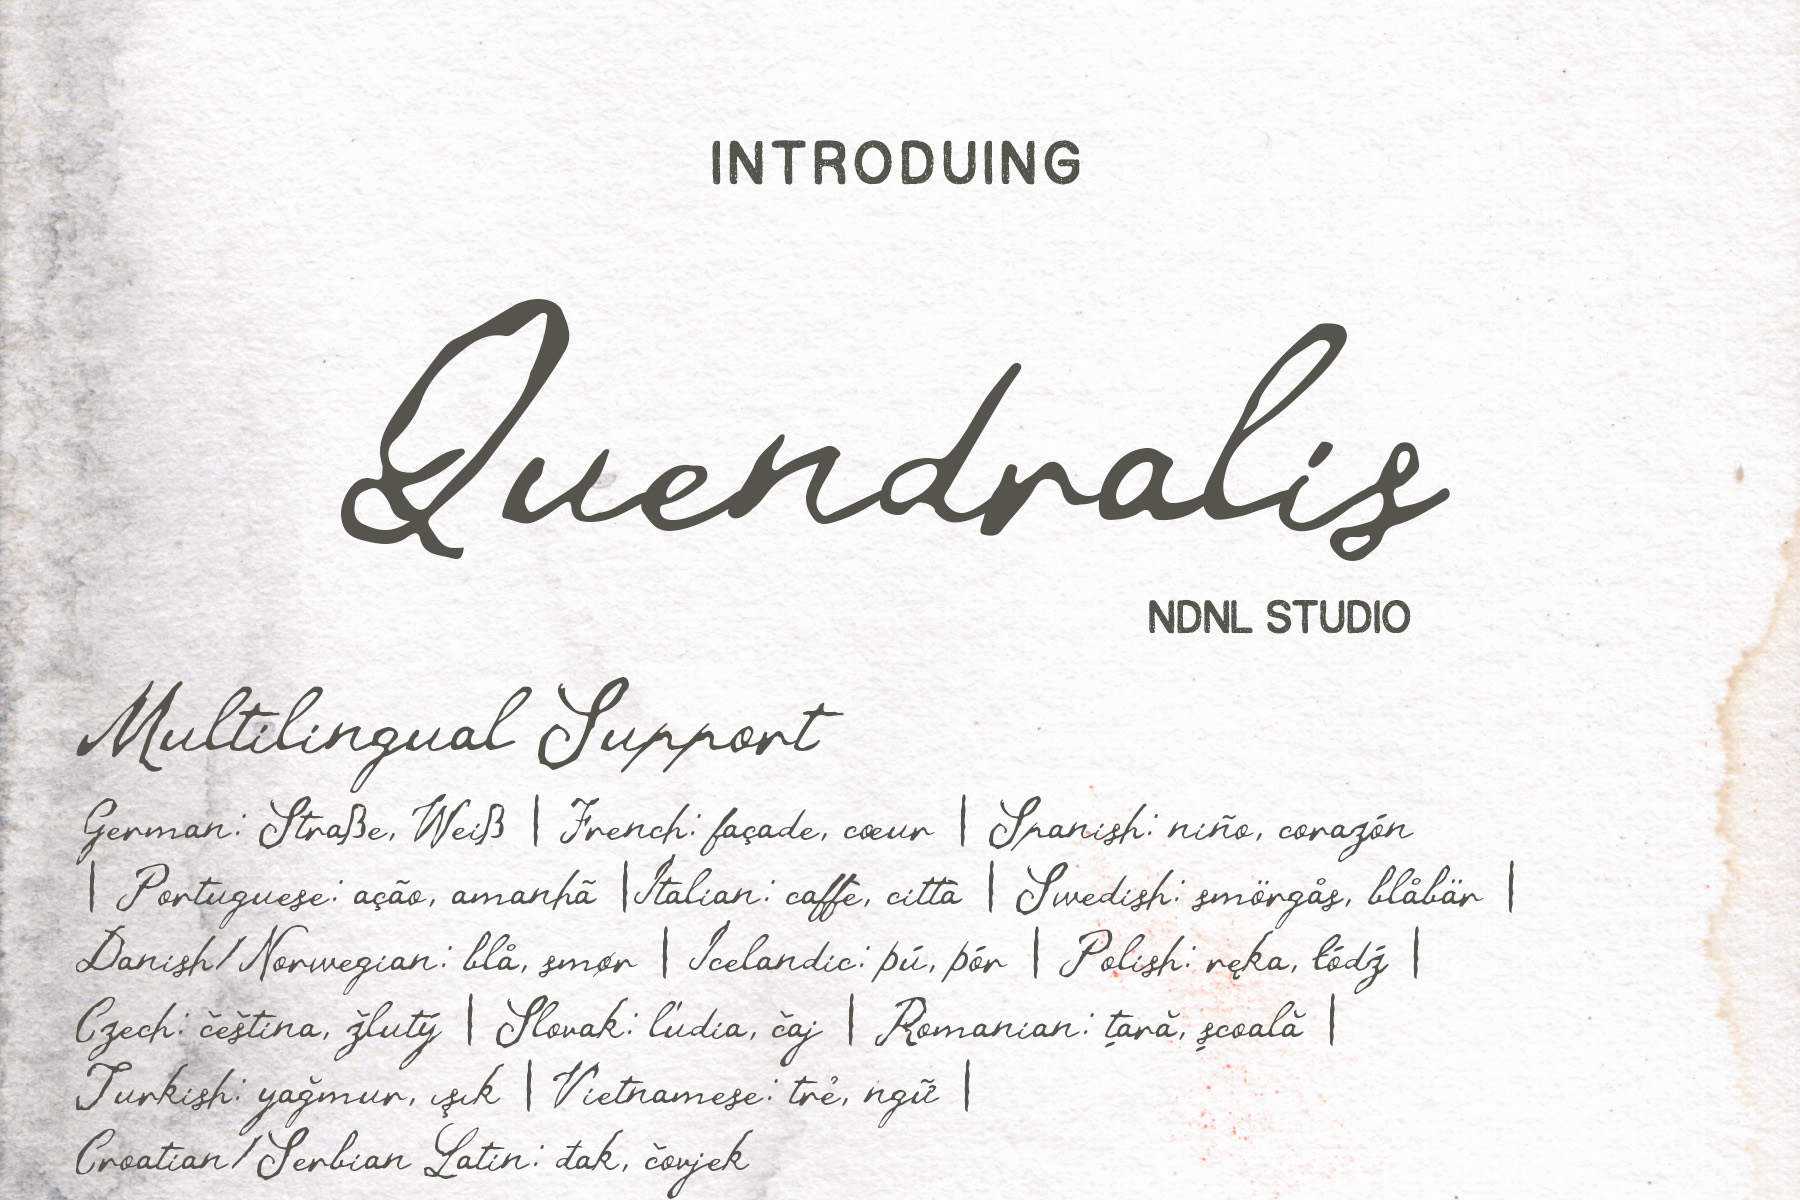 INTRODUING
Quendralis
NDNL STUDIO
Multilingual Support
German: Straße, Weiß | French: façade, cœur | Spanish: niño, corazón
| Portuguese: ação, amanhã | Italian: caffe, citta | Swedish: smörgås, blåbär |
Danish/Norwegian: blå, smør | Icelandic: þú, þór | Polish: ręka, łódź |
Czech: čeština, žlutý | Slovak: ľudia, čaj | Romanian: țară, școală |
Turkish: yağmur, ışık | Vietnamese: trẻ, ngữ |
Croatian/Serbian Latin: đak, čovjek